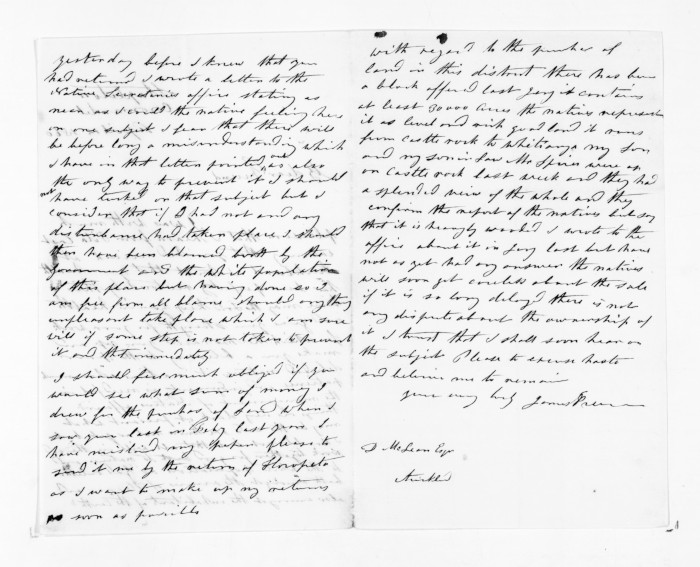 yesterday before I knew that you
had returned I wrote a letter to the
Native Secretaries office stating as
near as I could the natives feeling here
on one subject I fear that there will
be before long a misunderstanding which
I have in that letter pointed out as also
the only way to prevent it I should
not have touched on that subject but I
consider that if I had not and any
disturbance had taken place I should
then have been blamed both by the
Government and the white population
of this place but having done so I
am free from all blame should anything
unpleasant take place which I am sure
will if some step is not taken to prevent
it and that immediately
I should feel much obliged if you
would see what sum of money I
drew for the purchas of Land when I
saw you last in Feby last year I
have mislaid my paper please to
send it me by the return of Horopeta
as I want to make up my returns
as soon as possible
with regard to the purchas of
land in this district there has been
a block offered last Jany it contains
at least 30000 acres the natives represent
it as level and with good land it runs
from Castle rock to Whitianga my son
and my son in law Mr Spires were up
on Castle rock last week and they had
a splended view of the whole and they
confirm the report of the natives but say
that it is heavyly wooded I wrote to the
office about it in Jany last but have
not as yet had any answer the natives
will soon get careless about the sale
if it is so long delayd there is not
any dispute about the ownership of
it I trust that I shall soon hear on
the subject Please to excuse haste
and believe me to remain
your very truly James Preece
D McLean Esqr
Auckland